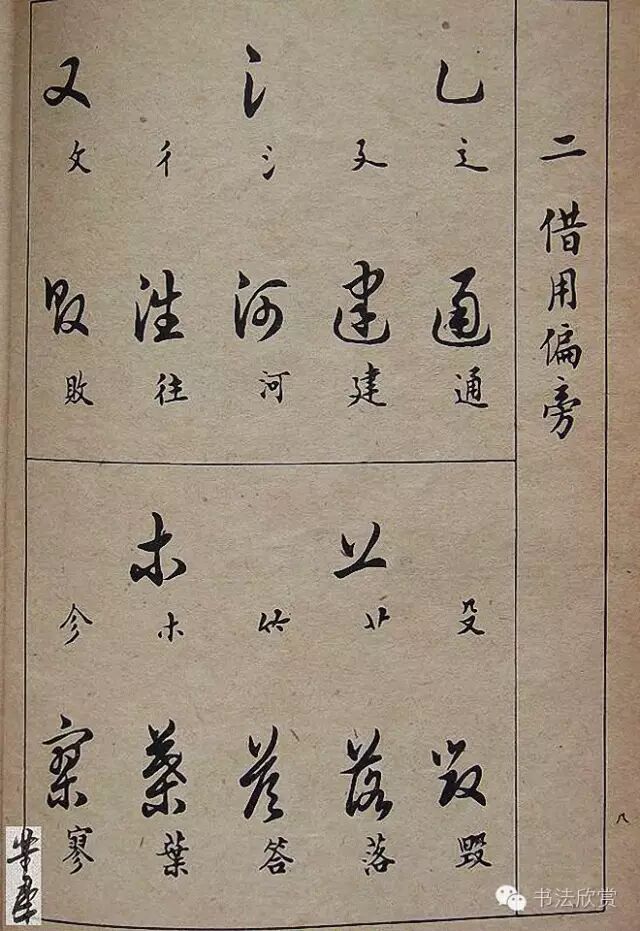 二 借用偏旁
辶 廴 氵 彳 攵
通 建 河 往 敗
通 建 河 往 敗
殳 艹 竹 木
毀 落 答 葉 寥
毀 落 答 葉 寥
八
书法欣赏